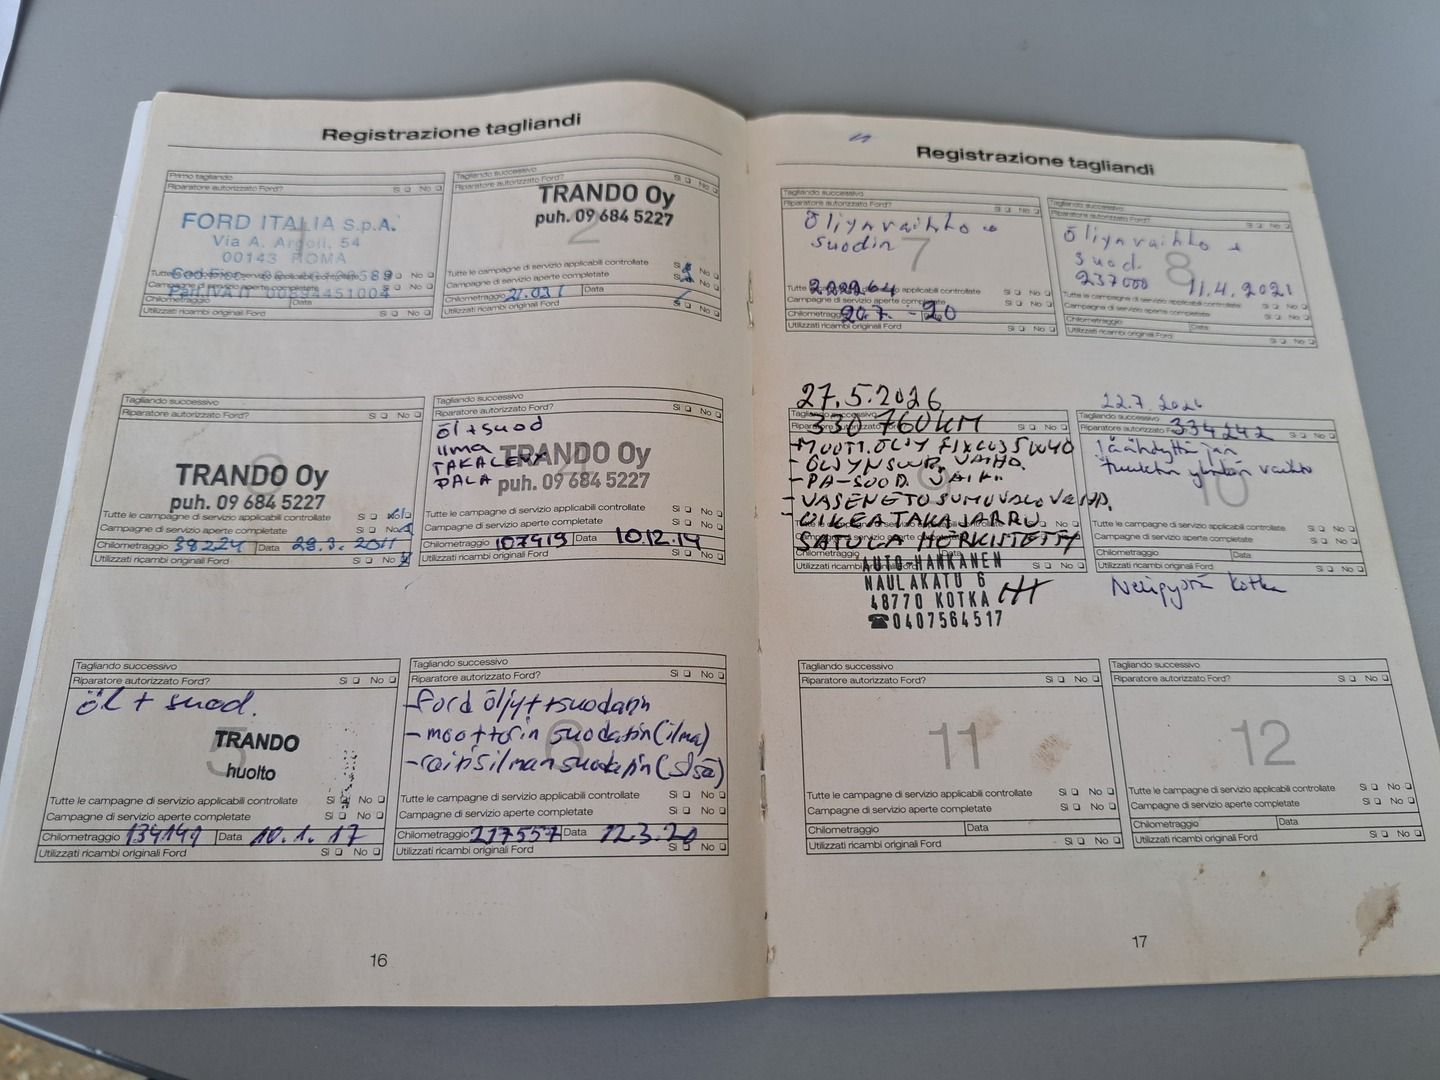 Registrazione tagliandi
Primo tagliando
Riparatore autorizzato Ford? Sì No
1
FORD ITALIA S.p.A.
Via A. Argoli, 54
00143 ROMA
Campagne di servizio aperte completate Sì No
Part.IVA IT 00894451004
Chilometraggio Data
Utilizzati ricambi originali Ford Sì No
Tagliando successivo
Riparatore autorizzato Ford? Sì No
TRANDO Oy
puh. 09 684 5227
2
Tutte le campagne di servizio applicabili controllate
Campagne di servizio aperte completate
Chilometraggio Data
Utilizzati ricambi originali Ford Sì No
Tagliando successivo
Riparatore autorizzato Ford? Sì No
3
TRANDO Oy
puh. 09 684 5227
Tutte le campagne di servizio applicabili controllate Sì No
Campagne di servizio aperte completate Sì No
Chilometraggio 38224 Data 28.3.2011
Utilizzati ricambi originali Ford Sì No
Tagliando successivo
Riparatore autorizzato Ford? Sì No
öl+suod
ilma
PALA
4
TRANDO Oy
puh. 09 684 5227
Tutte le campagne di servizio applicabili controllate Sì No
Campagne di servizio aperte completate Sì No
Chilometraggio 107419 Data 10.12.14
Utilizzati ricambi originali Ford Sì No
Tagliando successivo
Riparatore autorizzato Ford? Sì No
öl + suod.
5
TRANDO
huolto
Tutte le campagne di servizio applicabili controllate Sì No
Campagne di servizio aperte completate Sì No
Chilometraggio 134149 Data 10.1.17
Utilizzati ricambi originali Ford Sì No
Tagliando successivo
Riparatore autorizzato Ford? Sì No
-Ford öljy++suodatin
-moottorin suodatin (ilma)
6
Tutte le campagne di servizio applicabili controllate Sì No
Campagne di servizio aperte completate Sì No
Chilometraggio 217557 Data 12.3.20
Utilizzati ricambi originali Ford Sì No
16
Registrazione tagliandi
Tagliando successivo
Riparatore autorizzato Ford? Sì No
Öliynvaihto +
suodin
7
222264
Tutte le campagne di servizio applicabili controllate Sì No
Campagne di servizio aperte completate Sì No
Chilometraggio 20.7.-20
Utilizzati ricambi originali Ford Sì No
Tagliando successivo
Riparatore autorizzato Ford? Sì No
Öliynvaihto +
suod.
8
237000 11.4.2021
Tutte le campagne di servizio applicabili controllate Sì No
Campagne di servizio aperte completate Sì No
Chilometraggio Data
Utilizzati ricambi originali Ford Sì No
27.5.2026
Tagliando successivo
Riparatore autorizzato Ford?
330760KM
-MOOTT.ÖLJY 5W40
-ÖLJYNSUOD. VAIHD.
-PA-SUOD. VAIH.
-VASEN ETUSUMUVALO VAIHD.
-OIKEA TAKAJARRU
SATULA HERKISTETTY
AUTO-HANKANEN
NAULAKATU 6
48770 KOTKA
☎0407564517
22.7.2026
Tagliando successivo
Riparatore autorizzato Ford?
334242
Jäähdyttäjän
vaihto
10
Tutte le campagne di servizio applicabili controllate Sì No
Campagne di servizio aperte completate Sì No
Chilometraggio Data
Utilizzati ricambi originali Ford Sì No
Nelipyörä Kotka
Tagliando successivo
Riparatore autorizzato Ford? Sì No
11
Tutte le campagne di servizio applicabili controllate Sì No
Campagne di servizio aperte completate Sì No
Chilometraggio Data
Utilizzati ricambi originali Ford Sì No
Tagliando successivo
Riparatore autorizzato Ford? Sì No
12
Tutte le campagne di servizio applicabili controllate Sì No
Campagne di servizio aperte completate Sì No
Chilometraggio Data
Utilizzati ricambi originali Ford Sì No
17